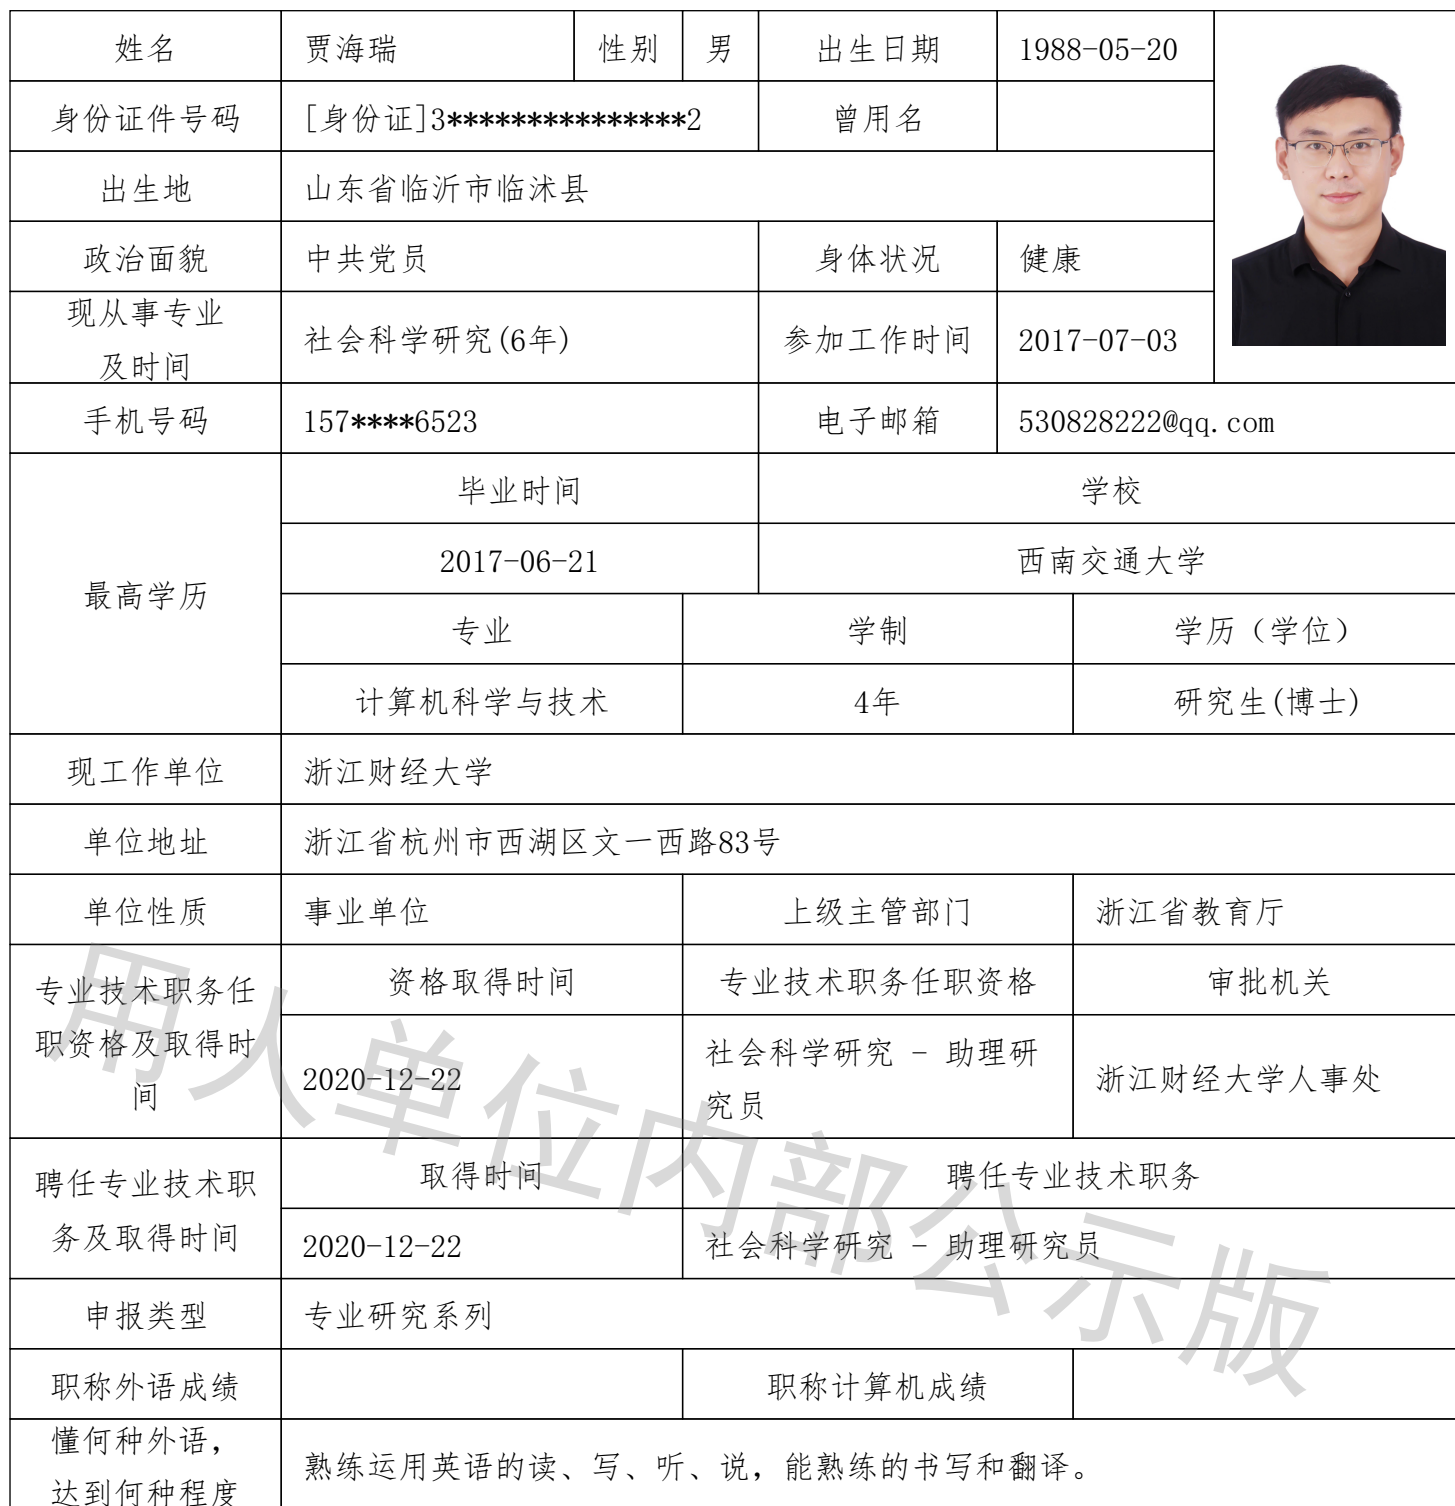 姓名 贾海瑞 性别 男 出生日期 1988-05-20
身份证件号码 [身份证]3***************2 曾用名
出生地 山东省临沂市临沭县
政治面貌 中共党员 身体状况 健康
现从事专业
及时间
社会科学研究(6年) 参加工作时间 2017-07-03
手机号码 157****6523 电子邮箱 530828222@qq.com
最高学历
毕业时间 学校
2017-06-21 西南交通大学
专业 学制 学历（学位）
计算机科学与技术 4年 研究生(博士)
现工作单位 浙江财经大学
单位地址 浙江省杭州市西湖区文一西路83号
单位性质 事业单位 上级主管部门 浙江省教育厅
专业技术职务任
职资格及取得时
间
资格取得时间 专业技术职务任职资格 审批机关
2020-12-22
社会科学研究 - 助理研
究员
浙江财经大学人事处
聘任专业技术职
务及取得时间
取得时间 聘任专业技术职务
2020-12-22 社会科学研究 - 助理研究员
申报类型 专业研究系列
职称外语成绩 职称计算机成绩
懂何种外语，
达到何种程度
熟练运用英语的读、写、听、说，能熟练的书写和翻译。
用人单位内部公示版